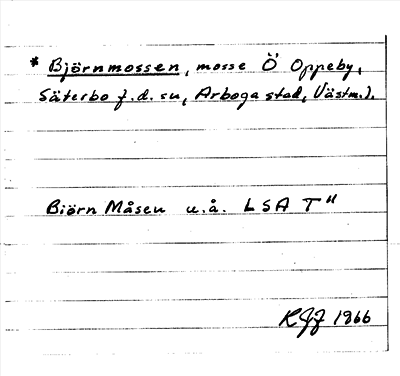 * Björnmossen, mosse Ö Oppeby,
Säterbo f.d. sn, Arboga stad, Västm.l.
Biörn Måsen u.å. LSA T"
KJJ 1966